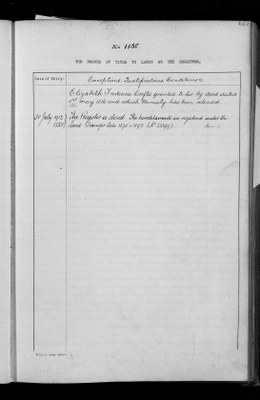 No. 1136
FOR RECORD OF TITLE TO LANDS ON THE REGISTER.
Date of Entry.
Exceptions, Qualifications, Conditions
Elizabeth Frederica Crofts granted to her by deed dated
2nd May 1850 and which Annuity has been released.
30 July 1912
The Register is closed. The hereditaments are registered under the
Land Transfer Acts 1875 & 1897